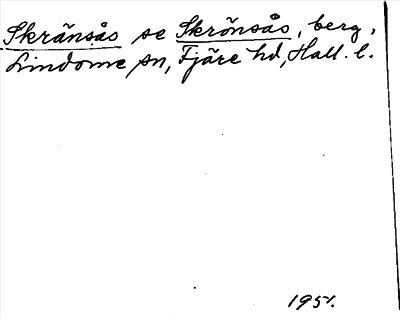 Skränsås se Skrönsås, berg,
Lindome sn, Fjäre hd, Hall. l.
1951.